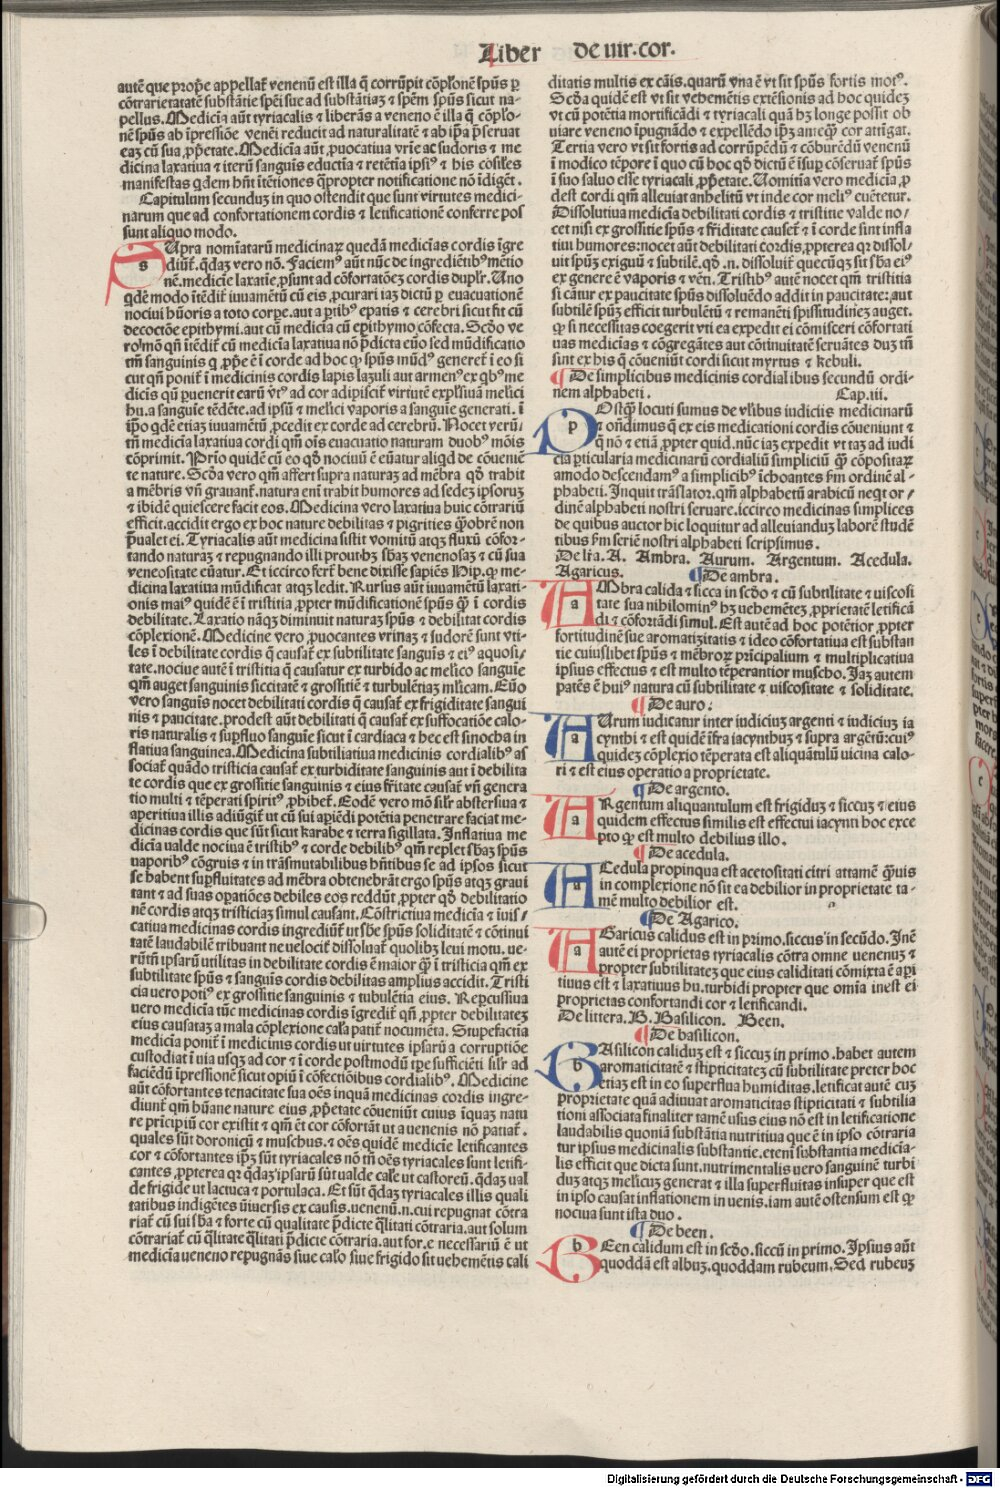 Liber de vir. cor.
autē que prop̄e appellat̄ venenū est illa q̄ corrūpit cōpl'onē spūs ꝑ
cōtrarietatatē substātie spēi sue ad substātiaꝫ ⁊ spēm spūs sicut na-
pellus. Medicīa aūt tyriacalis ⁊ liberās a veneno ē illa q̄ cōplo-
nē spūs ab īpressiōe venēi reducit ad naturalitatē ⁊ ab ip̄a p̄seruat
eaꝫ cū sua ,ppetate. Medicīa aūt ,puocatiua vrīe ac sudoris ⁊ me
dicina laxatiua ⁊ iterū sanguīs eductīa ⁊ retētīa ipsiꝰ ⁊ his cōsiles
manifestas qdem hn̄t ītētiones q̄propter notificatione nō īdigēt.
Capitulum secunduꝫ in quo ostendit que sunt virtutes medici-
narum que ad confortationem cordis ⁊ letificationē conferre pos
sunt aliquo modo.
SUpra nomīatarū medicinaꝝ quedā medicīas cordis īgre
diūt̄. q̄daꝫ vero nō. Faciemꝰ aūt nūc de ingrediētibꝰ mētio
nē. medicīe laxatiē ,psunt ad cōfortatōeꝫ cordis duplr̄. Uno
qdē modo ītēdit̄ iuuamētū cū eis ,pcurari iaꝫ dictū ꝑ euacuationē
nociui hūoris a toto corꝑe. aut a ꝑtibꝰ epatis ⁊ cerebri sicut fit cū
decoctōe epithymi. aut cū medicīa cū epithymo cōfecta. Scd̄o ve
ro mō qn̄ ītēdit̄ cū medicīa laxatiua nō p̄dicta euō sed mūdificatio
tm̄ sanguinis q̄ ,ppe ē ī corde ad hoc ꝙ spūs mūdꝰ generet̄ ī eo si
cut qn̄ ponit̄ ī medicinis cordis lapis lazuli aut armenꝰ ex qbꝰ me
dicīs qn̄ puenerit earū v̄tꝰ ad cor adipiscit̄ virtutē expl'siuā mel'ici
hu. a sanguīe tēdēte. ad ipsū ⁊ mel'ici vaporis a sanguīe generati. ī
īp̄o qdē etiaꝫ iuuamētū ,pcedit ex corde ad cerebrū. Nocet verū
tn̄ medicīa laxatiua cordi qm̄ oīs euacuatio naturam duobꝰ mōis
cōprimit. Prīo quidē cū eo qd̄ nociuū ē eūatur aliqd de cōueniē
te nature. Scd̄a vero qm̄ affert supra naturaꝫ ad mēbra qd̄ trahit
a mēbris vn̄ grauant̄. natura enī trahit humores ad sedeꝫ ipsoruꝫ
⁊ ibidē quiescere facit eos. Medicina vero laxatiua huic cōtrariū
efficit. accidit ergo ex hoc nature debilitas ⁊ pigrities q̄obrē non
p̄ualet ei. Tyriacalis aūt medicina sistit vomitū atqꝫ fluxū cōfor-
tando naturaꝫ ⁊ repugnando illi prout hꝫ sb̄aꝫ venenosaꝫ ⁊ cū sua
veneositate eūatur. Et iccirco fert̄ bene dixisse sapiēs Hip. ꝙ me-
dicina laxatiua mūdificat atqꝫ ledit. Rursus aūt iuuamētū laxati-
onis maiꝰ quidē ē ī tristitia ,ppter mūdificationē spūs q̄ ī cordis
debilitate. Laxatio nāqꝫ diminuit naturaꝫ spūs ⁊ debilitat cordis
cōplexionē. Medicine vero ,puocantes vrinaꝫ ⁊ sudorē sunt vti-
les ī debilitate cordis q̄ causat̄ ex subtilitate sanguīs ⁊ eiꝰ aquosi-
tate. nociue autē ī tristitia q̄ causatur ex turbido ac mel'ico sanguīe
qm̄ auget sanguinis siccitatē ⁊ grossitiē ⁊ turbulētiaꝫ ml'icam. Eūo
vero sanguīs nocet debilitati cordis q̄ causat̄ ex frigiditate sangui
nis ⁊ paucitate. prodest aūt debilitati q̄ causat̄ ex suffocatiōe calo-
ris naturalis ⁊ suꝑfluo sanguīe sicut ī cardiaca ⁊ hec est sinocha in
flatiua sanguinea. Medicina subtiliatiua medicinis cordialibꝰ as
sociat̄ quādo tristicia causat̄ ex turbiditate sanguinis aut ī debilita
te cordis que ex grossitie sanguinis ⁊ eius fr̄itate causat̄ vn̄ genera
tio multi ⁊ tēperati spiritꝰ ,phibet̄. Eodē vero mō silr̄ abstersiua ⁊
aperitiua illis adiūgit̄ ut cū sui apiēdi potētia penetrare faciat me-
dicinas cordis que sūt sicut karabe ⁊ terra sigillata. Inflatiua me
dicīa ualde nociua ē tristibꝰ ⁊ corde debilibꝰ qm̄ replet sbaꝫ spūs
uaporibꝰ cōgruis ⁊ in trāsmutabilibus hn̄tibus se ad ipsos sicut
se habent suꝑfluitates ad mēbra obtenebrāt ergo spūs atqꝫ graui
tant ⁊ ad suas opatiōes debiles eos reddūt ,ppter qd̄ debilitatio
nē cordis atqꝫ tristiciaꝫ simul causant. Cōstrictiua medicīa ⁊ īuis/
catiua medicinas cordis ingrediūt̄ ut sb̄e spūs soliditatē ⁊ cōtinui
tatē laudabilē tribuant ne velocit̄ dissoluat̄ quolibꝫ leui motu. ue-
rūtn̄ ipsarū utilitas in debilitate cordis ē maior q̄ ī tristicia qm̄ ex
subtilitate spūs ⁊ sanguīs cordis debilitas amplius accidit. Tristi
cia uero potiꝰ ex grossitie sanguinis ⁊ tubulētia eius. Reꝑcussiua
uero medicīa tūc medicinas cordis īgredit̄ qn̄ ,ppter debilitateꝫ
eius causataꝫ a mala cōplexione cal'a patit̄ nocumēta. Stupefactīa
medicīa ponit̄ ī medicinis cordis ut uirtutes ipsarū a corruptiōe
custodiat ī uia usqꝫ ad cor ⁊ ī corde postmodū tꝑe sufficiēti silr̄ ad
faciēdū īpressionē sicut opiū ī cōfectiōibus cordialibꝰ. Medicine
aūt cōfortantes tenacitate sua oēs inquā medicinas cordis ingre-
diunt̄ qm̄ hūane nature eius ,ppetate cōueniūt cuius īquaꝫ natu
re prīcipiū cor existit ⁊ qm̄ et cor cōfortāt ut a uenenis nō patiat̄.
quales sūt doronicū ⁊ muschus. ⁊ oēs quidē medicīe letificantes
cor ⁊ cōfortantes ip̄ꝫ sūt tyriacales nō tn̄ oēs tyriacales sunt letifi-
cantes ,ppterea qꝛ q̄daꝫ ipsarū sūt ualde cal'e ut castoreū. q̄daꝫ ual
de frigide ut lactuca ⁊ portulaca. Et sūt q̄daꝫ tyriacales illis quali
tatibus indigētes ūiuersis ex causis. uenenū .n. cui repugnat cōtra
riat̄ cū sui sb̄a ⁊ forte cū qualitate p̄dicte q̄litati cōtraria. aut solum
cōtrariat̄ cū q̄litate q̄litati p̄dicte cōtraria. aut for. e necessariū ē ut
medicīa ueneno repugnās siue cal'o siue frigido sit uehemētis cali
ditatis multis ex cāis. quarū vna ē vt sit spūs fortis motꝰ.
Scd̄a quidē est vt sit vehemētis extēsionis ad hoc quideꝫ
vt cū potētia mortificādi ⁊ tyriacali quā hꝫ longe possit ob
uiare veneno īpugnādo ⁊ expellēdo ip̄ꝫ anteq̄ cor attīgat.
Tertia vero vt sit fortis ad corrūpēdū ⁊ cōburēdū venenū
ī modico tēpore ī quo cū hoc qd̄ dictū ē īsuꝑ cōseruat̄ spūs
ī suo saluo esse tyriacali ,ppetate. Uomitīa vero medicīa ,p
dest cordi qm̄ alleuiat anhelitū vt inde cor meliꝰ euētetur.
Dissolutiua medicīa debilitati cordis ⁊ tristitie valde no/
cet nisi ex grossitie spūs ⁊ fr̄iditate causent̄ ⁊ ī corde sunt infla
tiui humores: nocet aūt debilitati cordis ,ppterea qꝛ dissol/
uit spūꝫ exiguū ⁊ subtilē. qd̄ .n. dissoluit̄ quecūqꝫ sit sb̄a eiꝰ
ex genere ē vaporis ⁊ vēti. Tristibꝰ autē nocet qm̄ tristitia
si cātur ex paucitate spūs dissoluēdo addit in paucitate: aut
subtilē spūꝫ efficit turbulētū ⁊ remanēti spissitudineꝫ auget.
ꝙ si necessitas coegerit vti ea expedit ei cōmisceri cōfortati
uas medicīas ⁊ cōgregātes aut cōtinuitatē seruātes duꝫ tn̄
sint ex his q̄ cōueniūt cordi sicut myrtus ⁊ kebuli.
¶ De simplicibus medicinis cordialibus secundū ordi-
nem alphabeti. Cap. iii.
POstq̄ locuti sumus de vl'ibus iudiciis medicinarū
⁊ ondimus q̄ ex eis medicationi cordis cōueniunt ⁊
q̄ nō ⁊ etiā ,ppter quid. nūc iaꝫ expedit vt taꝫ ad iudi
cia ꝑticularia medicinarū cordialiū simpliciū q̄ cōpositaꝝ
amodo descendamꝰ a simplicibꝰ īchoantes ẜm ordinē al-
phabeti. Inquit trāslator. qm̄ alphabetū arabicū neqt or/
dinē alphabeti nostri seruare. iccirco medicinas simplices
de quibus auctor hic loquitur ad alleuianduꝫ laborē studē
tibus ẜm seriē nostri alphabeti scripsimus.
De lr̄a. A. Ambra. Aurum. Argentum. Acedula.
Agaricus. ¶ De ambra.
AMbra calida ⁊ sicca in scd̄o ⁊ cū subtilitate ⁊ uiscosi
tate sua nihilominꝰ hꝫ uehemēteꝫ ,pprietatē letificā
di ⁊ cōfortādi simul. Est autē ad hoc potētior ,ppter
fortitudinē sue aromatizitatis ⁊ ideo cōfortatiua est substan
tie cuiuslibet spūs ⁊ mēbroꝝ prīcipalium ⁊ multiplicatiua
ipsius effectus ⁊ est multo tēperantior muscho. Iaꝫ autem
patēs ē huiꝰ natura cū subtilitate ⁊ uiscositate ⁊ soliditate.
¶ De auro.
AUrum iudicatur inter iudiciuꝫ argenti ⁊ iudiciuꝫ ia
cynthi ⁊ est quidē īfra iacynthuꝫ ⁊ supra argētū: cuiꝰ
quideꝫ cōplexio tēperata est aliquātulū uicina calo-
ri ⁊ est eius operatio a proprietate.
¶ De argento.
ARgentum aliquantulum est frigiduꝫ ⁊ siccuꝫ ⁊ eius
quidem effectus similis est effectui iacynti hoc exce
pto ꝙ est multo debilius illo.
¶ De acedula.
ACedula propinqua est acetositati citri attamē q̄uis
in complexione nō sit ea debilior in proprietate ta-
mē multo debilior est.
¶ De Agarico.
AGaricus calidus est in primo. siccus in secūdo. Inē
autē ei proprietas tyriacalis cōtra omne uenenuꝫ ⁊
propter subtilitateꝫ que eius caliditati cōmixta ē apī
tiuus est ⁊ laxatiuus hu. turbidi propter que omīa inest ei
proprietas confortandi cor ⁊ letificandi.
De littera. B. Basilicon. Been.
¶ De basilicon.
BAsilicon caliduꝫ est ⁊ siccuꝫ in primo. habet autem
aromaticitatē ⁊ stipticitateꝫ cū subtilitate preter hoc
etiaꝫ est in eo superflua humiditas. letificat autē cuꝫ
proprietate quā adiuuat aromaticitas stipticitati ⁊ subtilia
tioni associata finaliter tamē usus eius nō est in letificatione
laudabilis quoniā substātia nutritiua que ē in ipso cōtraria
tur ipsius medicinalis substantie. eteni substantia medicīa-
lis efficit que dicta sunt. nutrimentalis uero sanguinē turbi
duꝫ atqꝫ mel'icuꝫ generat ⁊ illa superfluitas insuper que est
in ipso causat inflationem in uenis. iam autē ostensum est ꝙ
nociua sunt ista duo.
¶ De been.
BEen calidum est in scd̄o. siccū in primo. Ipsius aūt
quoddā est albuꝫ. quoddam rubeum. Sed rubeuꝫ
Digitalisierung gefördert durch die Deutsche Forschungsgemeinschaft - DFG